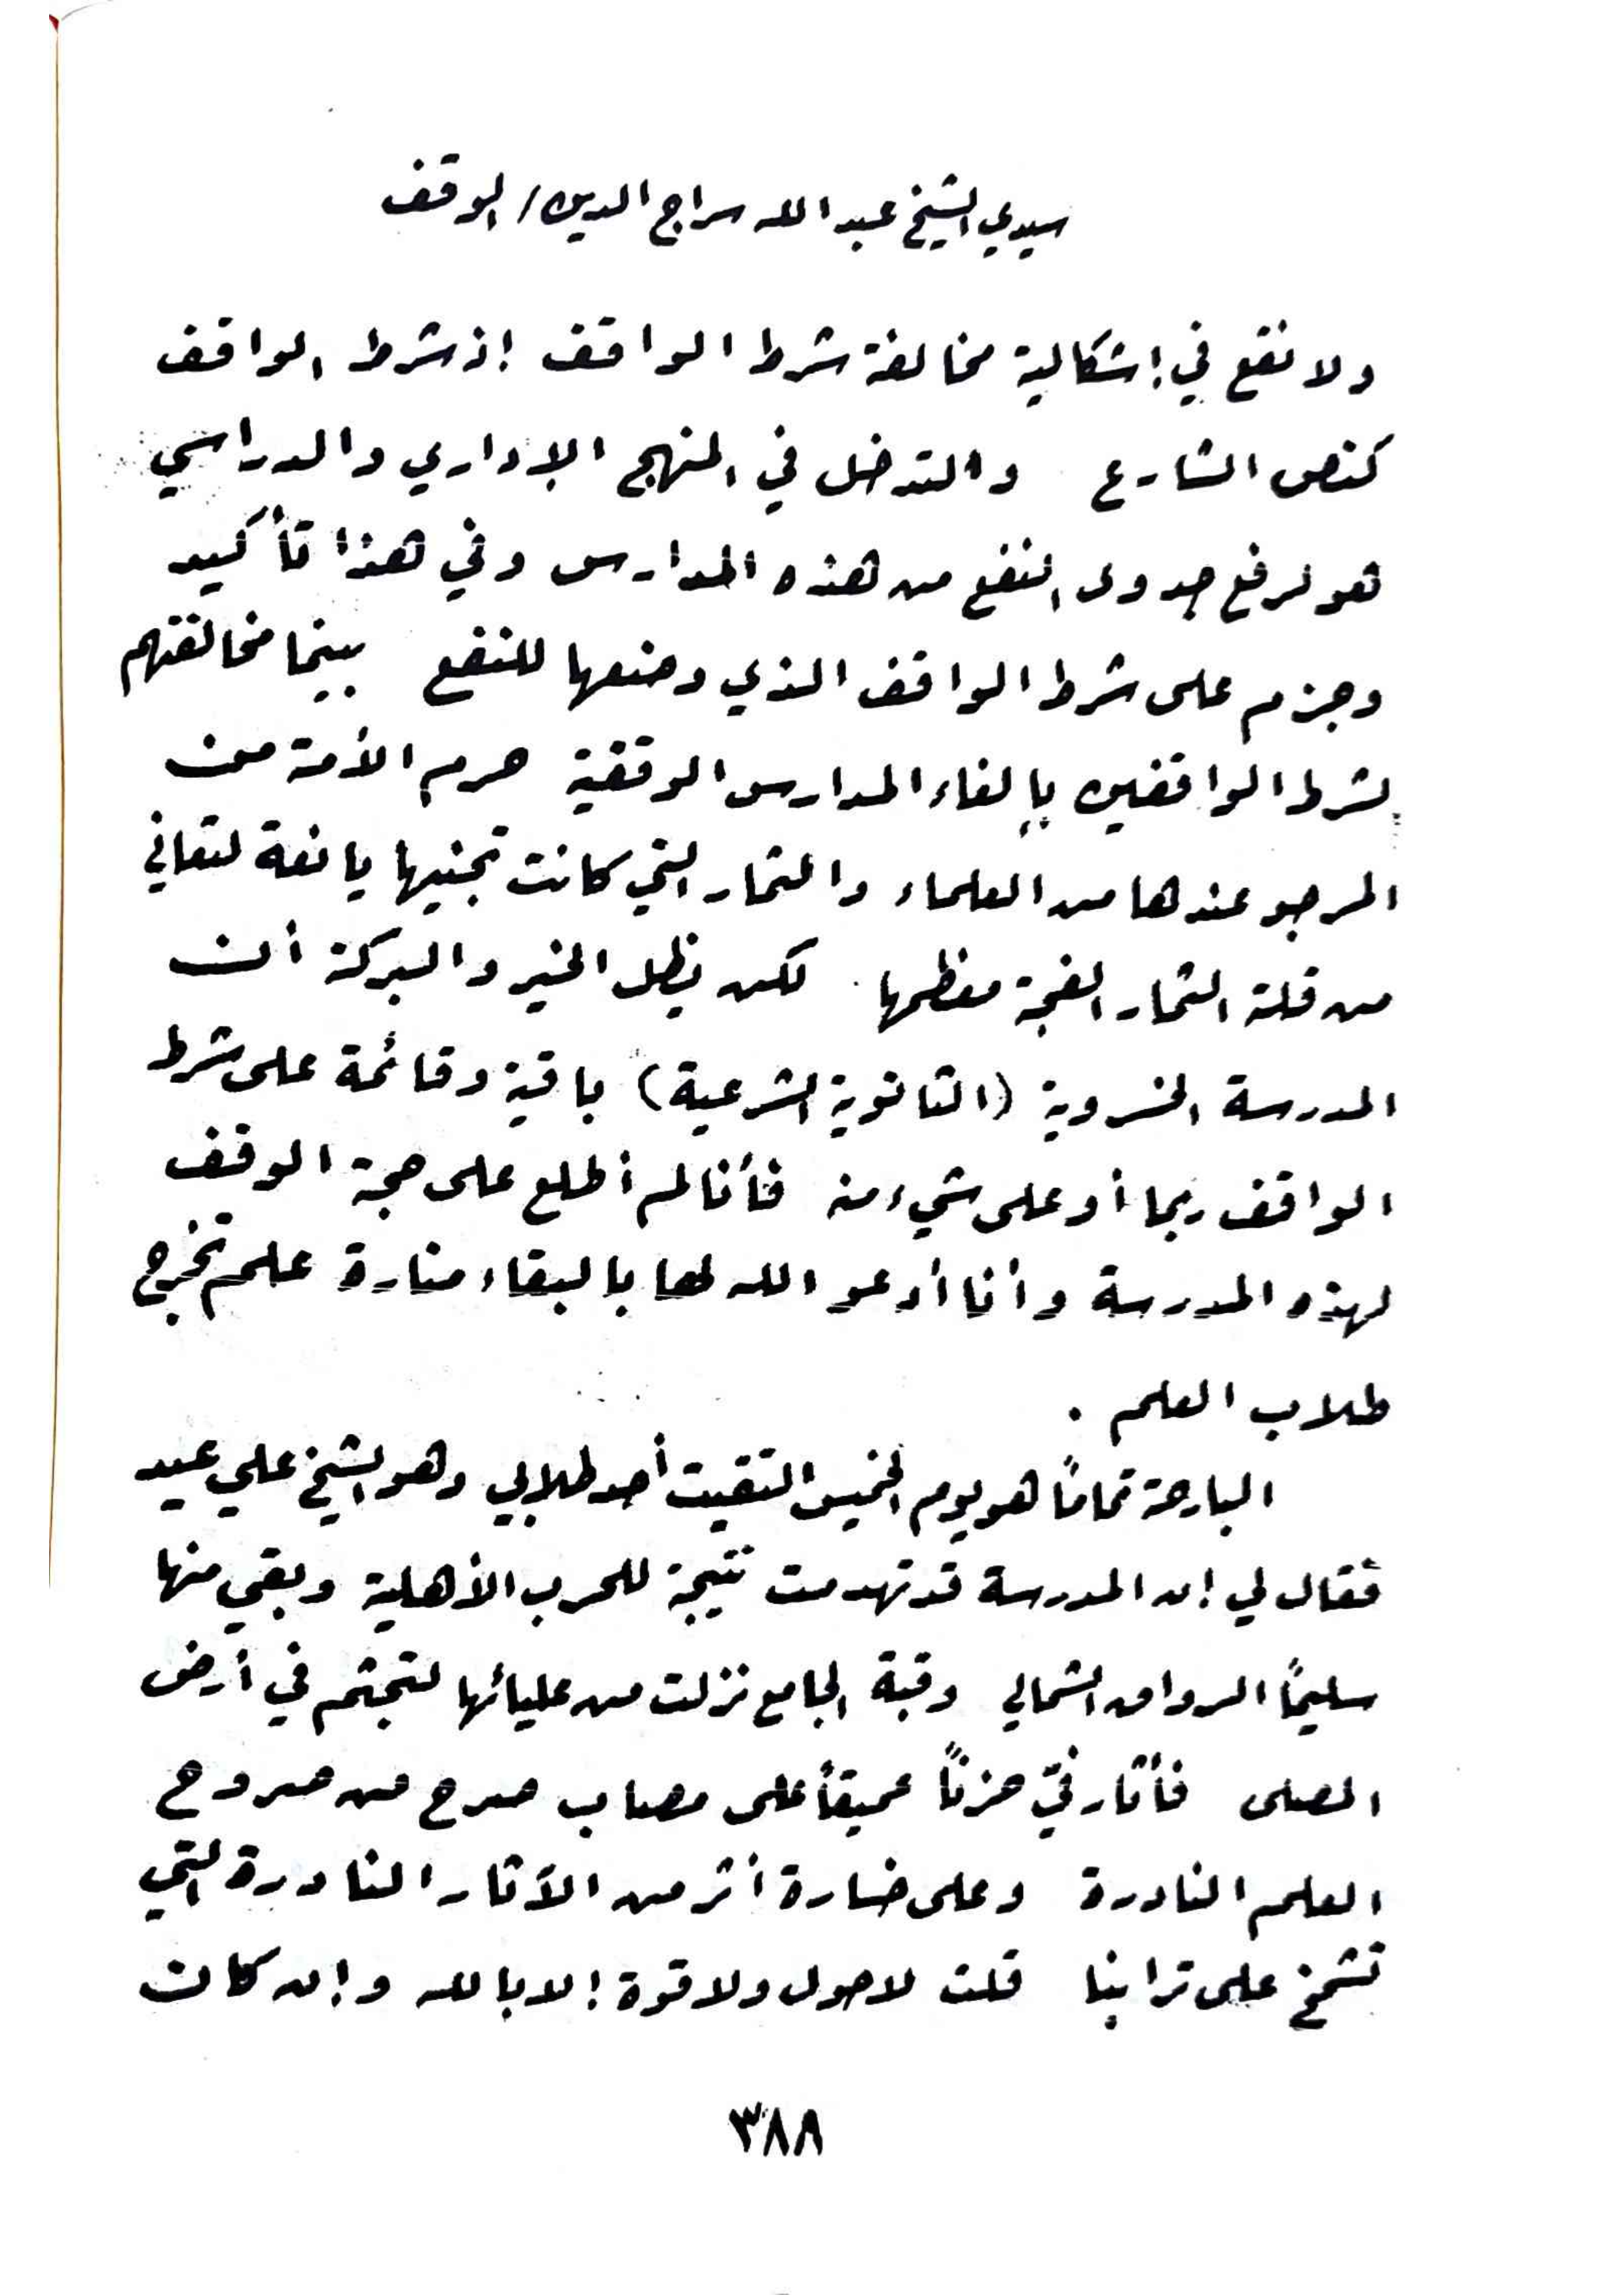 سيدي الشيخ عبد الله سراج الدين / الوقف
ولا نقع في إشكالية مخالفة شرط الواقف إذ شرط الواقف
كنص الشارع والتدخل في المنهج الإداري والدراسي
هو لرفع جدوى النفع من هذه المدارس وفي هذا تأكيد
وجزم على شرط الواقف الذي وضعها للنفع بينما مخالفتهم
لشرط الواقفين بإلغاء المدارس الوقفية حرم الأمة من
المرجو عندها من العلماء والثمار التي كانت تجنيها يانعة لتعاني
من قلة الثمار الفجة معظمها. لكن يظل الخير والبركة أن
المدرسة الخسروية (الثانوية الشرعية) باقية وقائمة على شرط
الواقف ربما أو على شيء منه فأنا لم أطلع على حجة الوقف
لهذه المدرسة وأنا أدعو الله لها بالبقاء منارة علم تخرج
طلاب العلم .
البارحة تماماً هو يوم الخميس التقيت أحد طلابي وهو الشيخ علي عبيد
فقال لي إن المدرسة قد تهدمت نتيجة للحرب الأهلية وبقي منها
سليماً الرواق الشمالي وقبة الجامع نزلت من عليائها لتجثم في أرض
المصلى فأثار فيّ حزناً عميقاً على مصاب صرح من صروح
العلم النادرة وعلى خسارة أثر من الآثار النادرة التي
تشمخ على ترابنا قلت لا حول ولا قوة إلا بالله وإن كان
٣٨٨